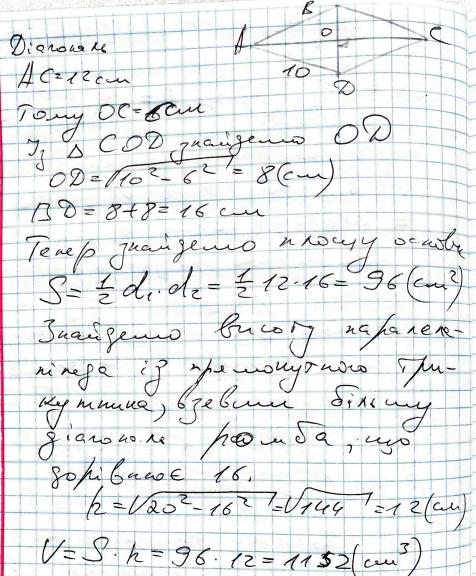 B
A O C
10
D
Діагональ
AC=12см
Тому OC=6см
Із Δ COD знайдемо OD
OD=√10²-6² = 8(см)
BD=8+8=16 см
Тепер знайдемо площу основи
S=1/2 d₁·d₂=1/2 12·16=96(см²)
Знайдемо висоту паралеле-
піпеда із прямокутного три-
кутника, взевши більшу
діагональ ромба, що
дорівнює 16.
h=√20²-16²=√144=12(см)
V=S·h=96·12=1152(см³)